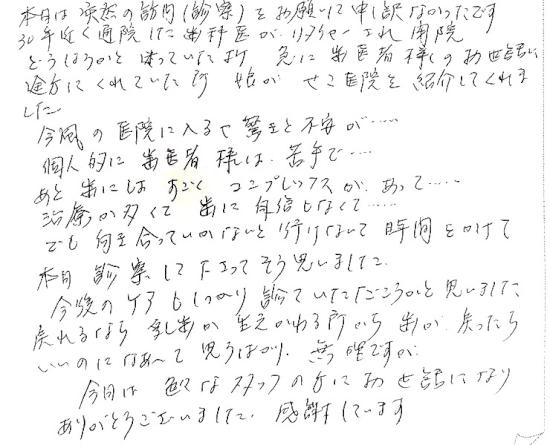 本日は突然の訪問(診察)をお願いして申し訳なかったです
30年近く通院した歯科医がリタイヤーされ閉院
どうしようかと困っていた時 急に歯医者様のお世話に
途方にくれていた所 娘が せこ医院を紹介してくれま
した
今風の医院に入るや驚きと不安が……
個人的に歯医者様は、苦手で……
あと歯にはすごくコンプレックスがあって……
治療が多くて 歯に自信もなくて……
でも向き合っていかないと行けないし時間をかけて
本日 診察して下さってそう思いました。
今後のケアもしっかり診ていただこうかと思いました
戻れるなら乳歯が生えかわる所から歯が戻ったら
いいのになあ〜て思うばかり、無理ですが
今日は色々なスタッフの方にお世話になり
ありがとうございました、感謝しています